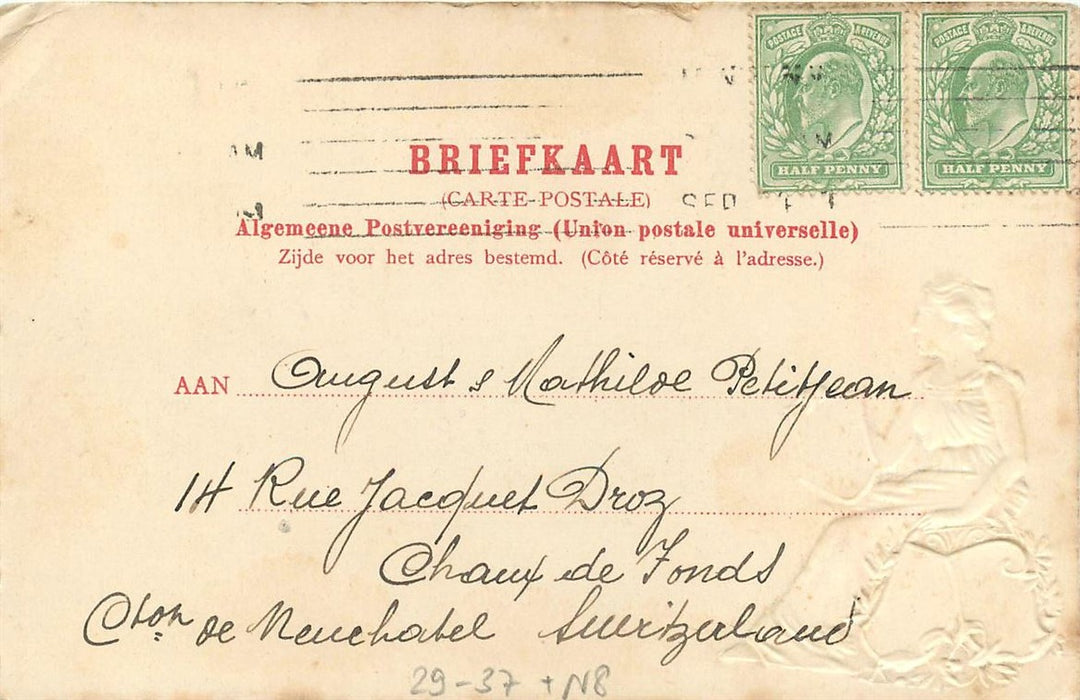 POSTAGE & REVENUE POSTAGE & REVENUE
HALF PENNY HALF PENNY
AM
BRIEFKAART
(CARTE-POSTALE)
SEP
Algemeene Postvereeniging (Union postale universelle)
Zijde voor het adres bestemd. (Côté réservé à l'adresse.)
AAN August & Mathilde Petitjean
14 Rue Jacquet Droz
Chaux de Fonds
Cton de Neuchatel Switzerland
29-37 + N8